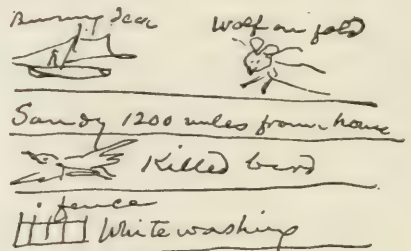 Wolf on fold
Sandy 1200 miles from home
Killed bird
fence
White washing